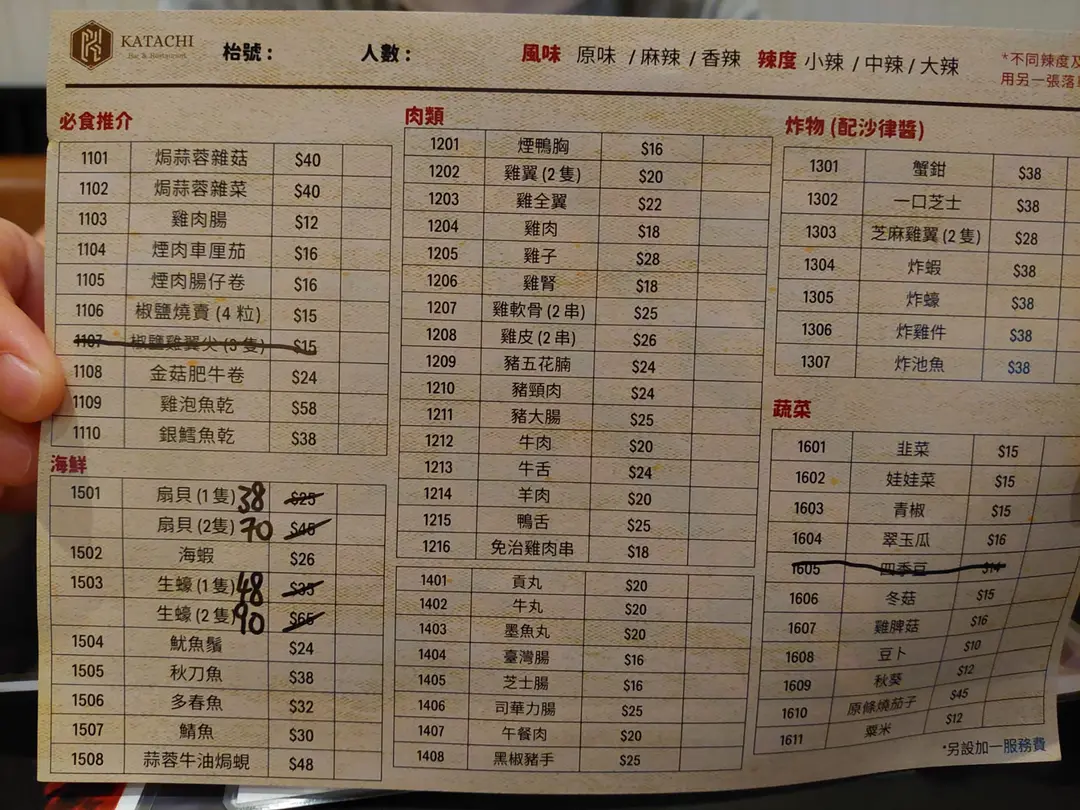 KATACHI
Bar & Restaurant
枱號：
人數：
風味 原味 / 麻辣 / 香辣 辣度 小辣 / 中辣 / 大辣
*不同辣度及
用另一張落
必食推介
1101 焗蒜蓉雜菇 $40
1102 焗蒜蓉雜菜 $40
1103 雞肉腸 $12
1104 煙肉車厘茄 $16
1105 煙肉腸仔卷 $16
1106 椒鹽燒賣 (4 粒) $15
1107 椒鹽雞翼尖 (3 隻) $15
1108 金菇肥牛卷 $24
1109 雞泡魚乾 $58
1110 銀鱈魚乾 $38
海鮮
1501 扇貝 (1 隻) 38 $25
扇貝 (2隻) 70 $45
1502 海蝦 $26
1503 生蠔 (1 隻) 48 $35
生蠔 (2 隻) 90 $65
1504 魷魚鬚 $24
1505 秋刀魚 $38
1506 多春魚 $32
1507 鯖魚 $30
1508 蒜蓉牛油焗蜆 $48
肉類
1201 煙鴨胸 $16
1202 雞翼 (2 隻) $20
1203 雞全翼 $22
1204 雞肉 $18
1205 雞子 $28
1206 雞腎 $18
1207 雞軟骨 (2 串) $25
1208 雞皮 (2 串) $26
1209 豬五花腩 $24
1210 豬頸肉 $24
1211 豬大腸 $25
1212 牛肉 $20
1213 牛舌 $24
1214 羊肉 $20
1215 鴨舌 $25
1216 免治雞肉串 $18
1401 貢丸 $20
1402 牛丸 $20
1403 墨魚丸 $20
1404 臺灣腸 $16
1405 芝士腸 $16
1406 司華力腸 $25
1407 午餐肉 $20
1408 黑椒豬手 $25
炸物 (配沙律醬)
1301 蟹鉗 $38
1302 一口芝士 $38
1303 芝麻雞翼 (2 隻) $28
1304 炸蝦 $38
1305 炸蠔 $38
1306 炸雞件 $38
1307 炸池魚 $38
蔬菜
1601 韭菜 $15
1602 娃娃菜 $15
1603 青椒 $15
1604 翠玉瓜 $16
1605 四季豆 $14
1606 冬菇 $15
1607 雞脾菇 $16
1608 豆卜 $10
1609 秋葵 $12
1610 原條燒茄子 $45
1611 粟米 $12
*另設加一服務費